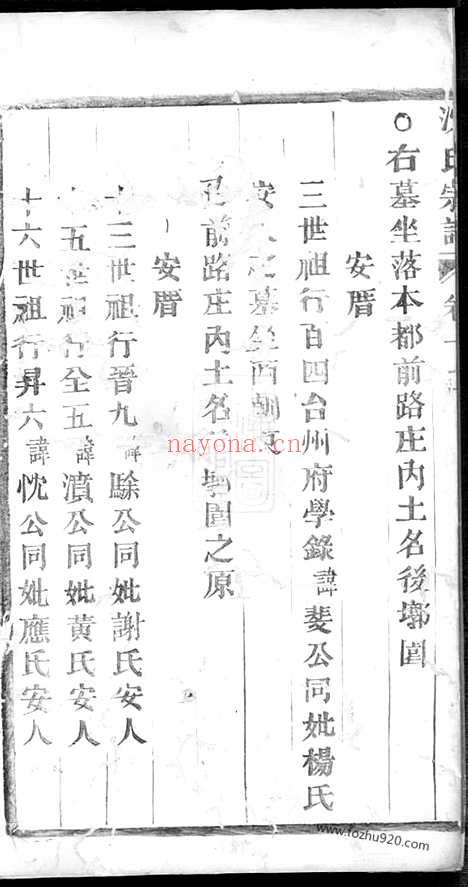 氏宗譜
○右墓坐落本都前路庄内土名後墎園
安厝
三世祖行百四台州府學錄諱斐公同妣楊氏
安人之墓坐西朝
前路庄内土名 園之原
安厝
十三世祖行晉九諱騄公同妣謝氏安人
十五世祖行全五諱濆公同妣黄氏安人
十六世祖行昇六諱忱公同妣應氏安人
nayona.cn
www.fozhu920.com